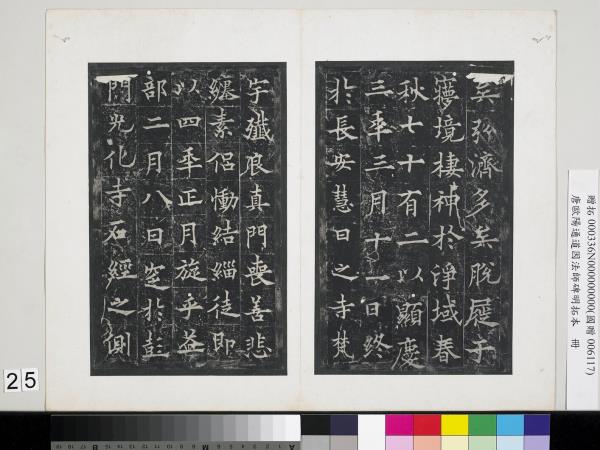 矣弥濟多矣脫屣于
寢境棲神於淨域春
秋七十有二以顯慶
三年三月十一日終
於長安慧日之寺梵
宇殲良真門喪善悲
纏素侶慟結緇徒即
以四年正月旋乎益
部二月八日窆於彭
門光化寺石經之側
贈拓 000336N000000000(國贈 006117)
唐歐陽通道因法師碑明拓本 冊
25